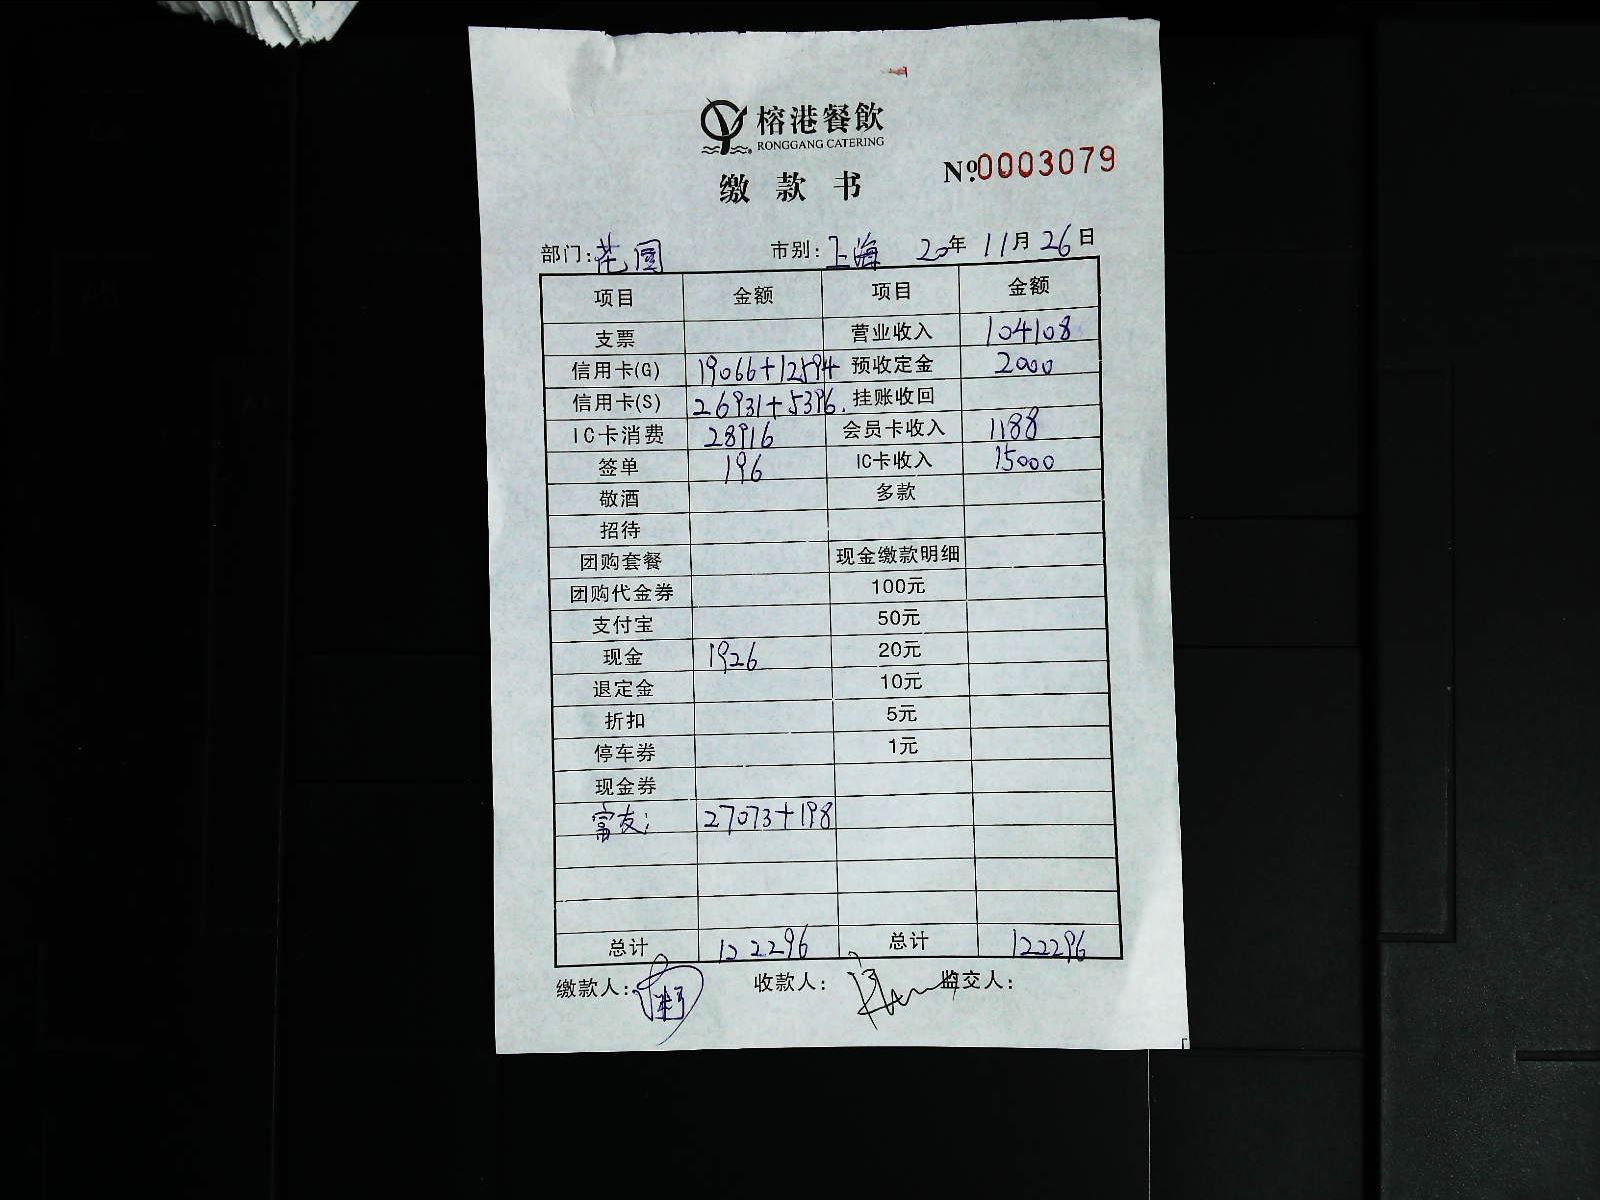 榕港餐飲
RONGGANG CATERING
缴款书
№0003079
部门:花园 市别:上海 20年11月26日
项目 金额 项目 金额
支票 营业收入 104108
信用卡(G) 19066+12594 预收定金 2000
信用卡(S) 26931+5396. 挂账收回
IC卡消费 28916 会员卡收入 1188
签单 196 IC卡收入 15000
敬酒 多款
招待
团购套餐 现金缴款明细
团购代金券 100元
支付宝 50元
现金 1926 20元
退定金 10元
折扣 5元
停车券 1元
现金券
富友: 27073+198
总计 122296 总计 122296
缴款人: 收款人: 监交人: